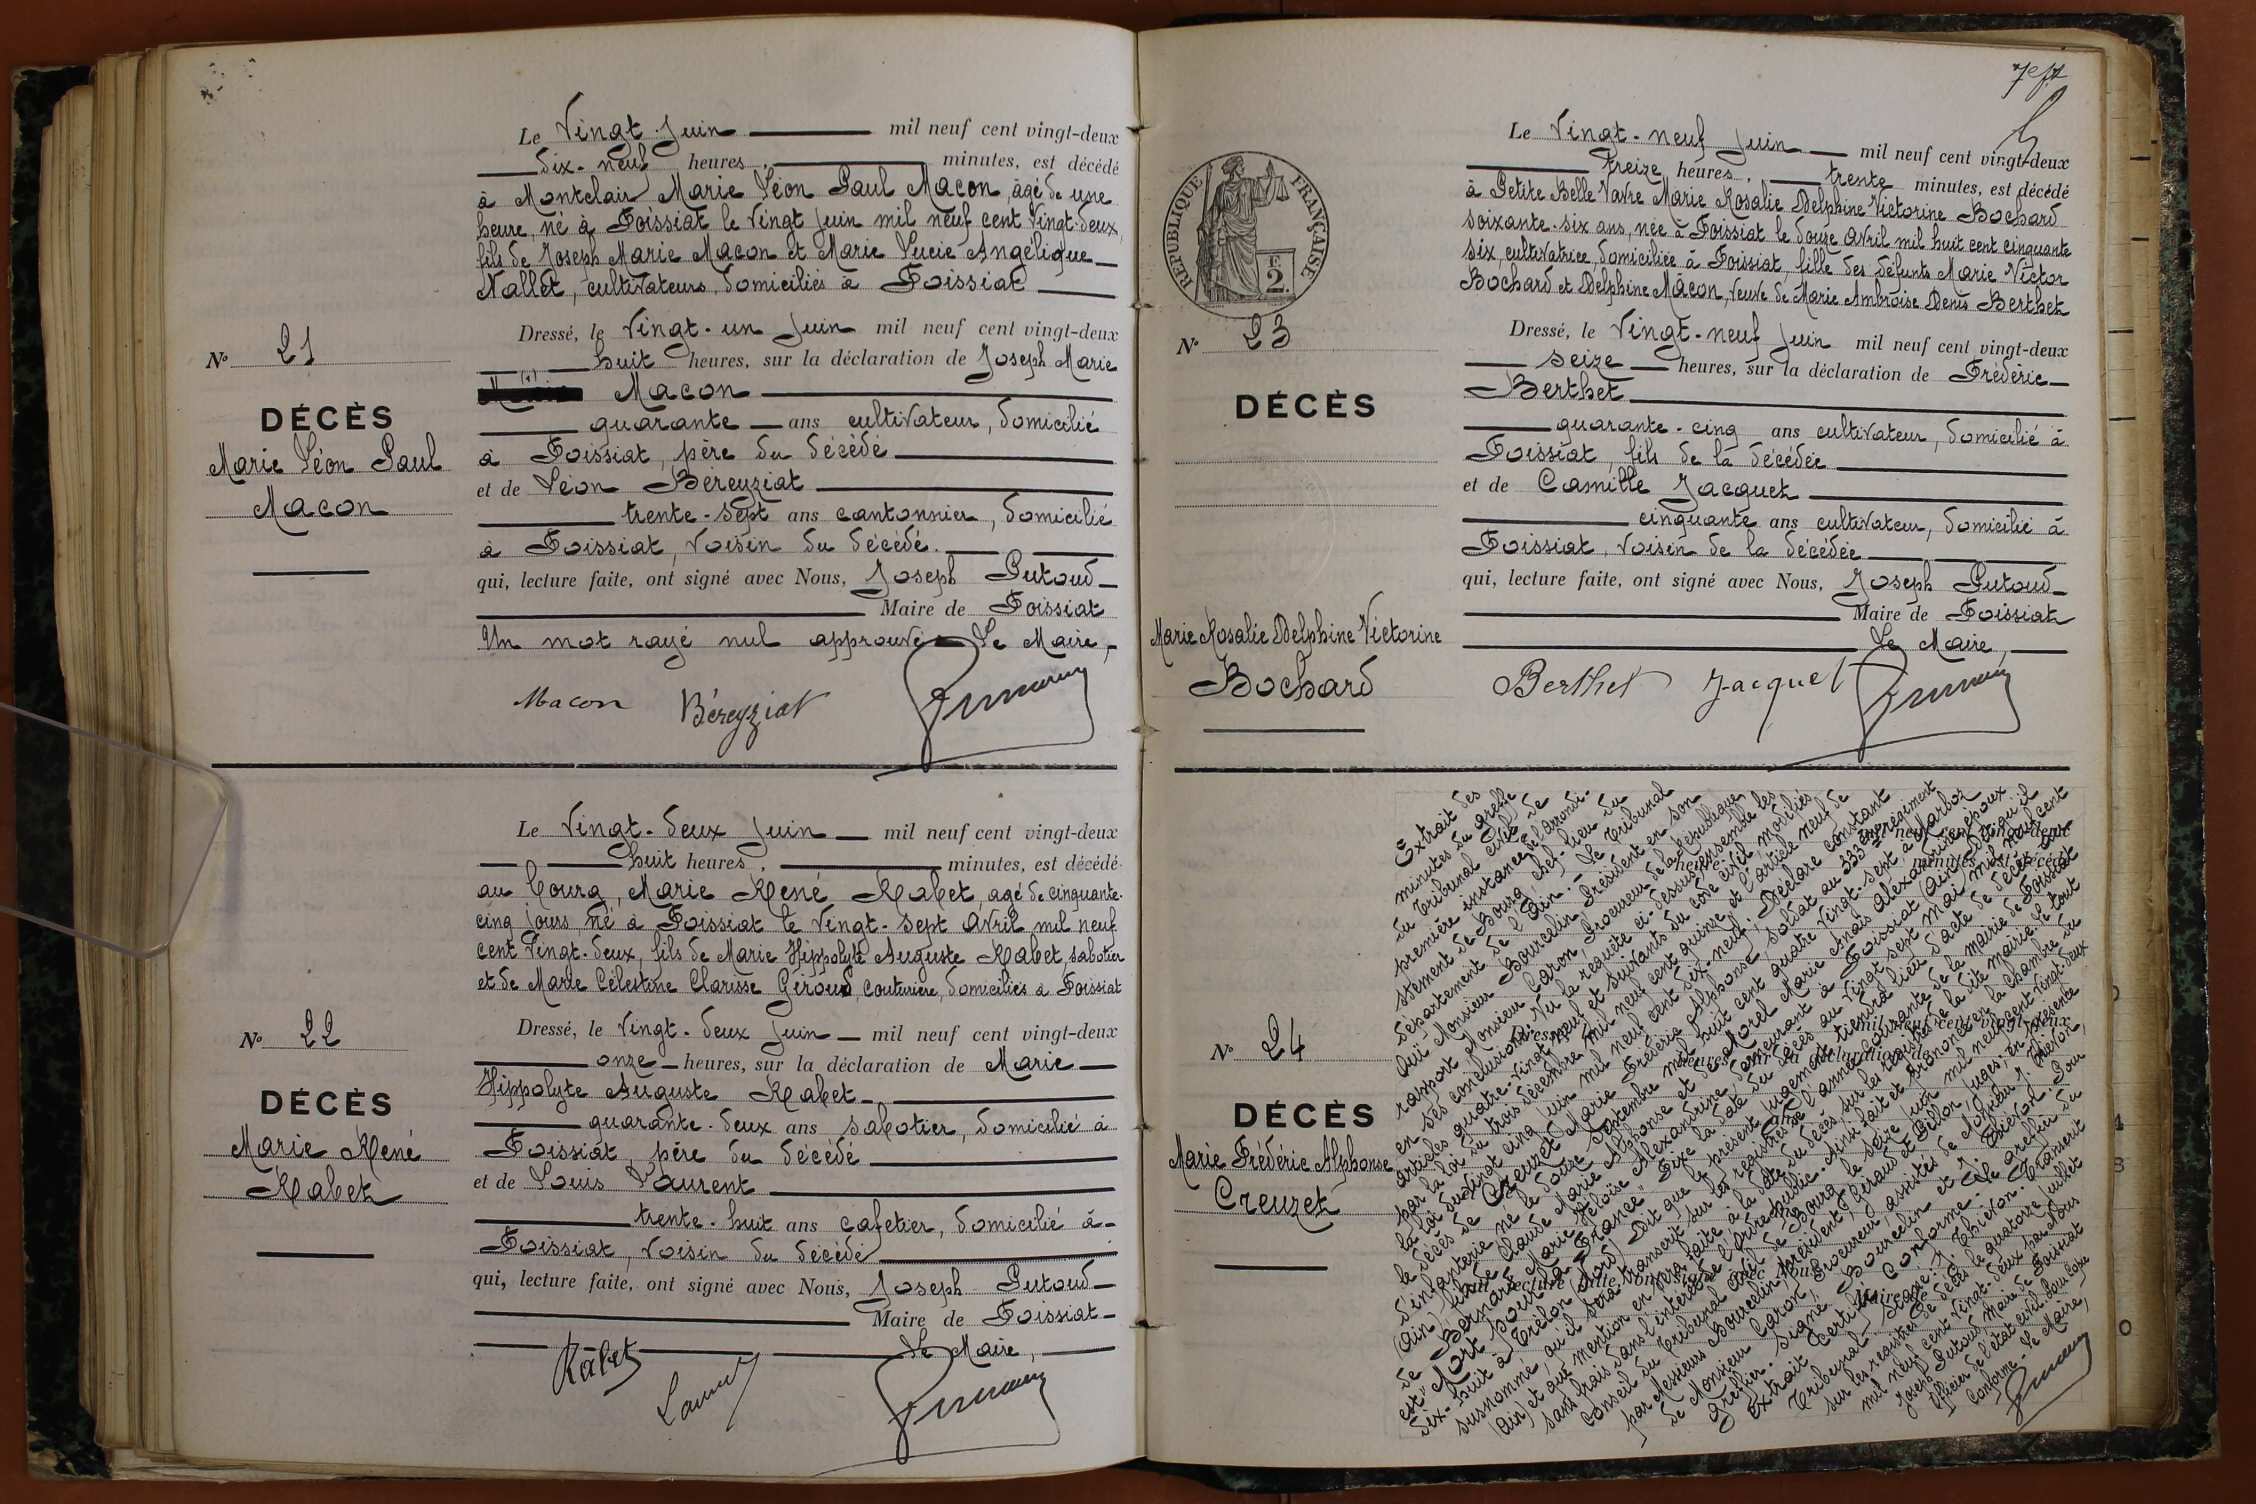 Le Vingt Juin mil neuf cent vingt-deux
dix-neuf heures, minutes, est décédé
à Montclair Marie Léon Paul Macon, âgé de une
heure, né à Foissiat le vingt Juin mil neuf cent vingt-deux,
fils de Joseph Marie Macon et Marie Lucie Angélique
Nallet, cultivateurs, domiciliés à Foissiat
Dressé, le Vingt-un Juin mil neuf cent vingt-deux
N° 21
huit heures, sur la déclaration de Joseph Marie
Macon
DÉCÈS
Marie Léon Paul
Macon
quarante ans cultivateur, domicilié
à Foissiat, père du décédé
et de Léon Béreyziat
trente-sept ans cantonnier, domicilié
à Foissiat, voisin du décédé.
qui, lecture faite, ont signé avec Nous, Joseph Putoud
Maire de Foissiat
Un mot rayé nul approuvé Le Maire,
Macon Béreyziat
Le Vingt-deux Juin mil neuf cent vingt-deux
huit heures, minutes, est décédé
au bourg, Marie René Rabet, agé de cinquante-
cinq jours né à Foissiat le vingt-sept avril mil neuf
cent vingt-deux, fils de Marie Hippolyte Auguste Rabet, sabotier
et de Marie Célestine Clarisse Giroud, couturière, domiciliés à Foissiat
N° 22
Dressé, le Vingt-deux Juin mil neuf cent vingt-deux
onze heures, sur la déclaration de Marie
Hippolyte Auguste Rabet
DÉCÈS
Marie René
Rabet
quarante-deux ans sabotier, domicilié à
Foissiat, père du décédé
et de Louis Laurent
trente-huit ans cafetier, domicilié à
Foissiat, voisin du décédé
qui, lecture faite, ont signé avec Nous, Joseph Putoud
Maire de Foissiat
Le Maire,
Rabet Laurent
RÉPUBLIQUE FRANÇAISE
2
Le Vingt-neuf Juin mil neuf cent vingt-deux
treize heures, trente minutes, est décédé
à Petite Belle Vavre Marie Rosalie Delphine Victorine Bochard
soixante-six ans, née à Foissiat le douze avril mil huit cent cinquante
six, cultivatrice, domiciliée à Foissiat, fille des défunts Marie Victor
Bochard et Delphine Macon, veuve de Marie Ambroise Denis Berthet
N° 23
Dressé, le Vingt-neuf Juin mil neuf cent vingt-deux
seize heures, sur la déclaration de Frédéric
Berthet
DÉCÈS
Marie Rosalie Delphine Victorine
Bochard
quarante-cinq ans cultivateur, domicilié à
Foissiat, fils de la décédée
et de Camille Jacquet
cinquante ans cultivateur, domicilié à
Foissiat, voisin de la décédée
qui, lecture faite, ont signé avec Nous, Joseph Putoud
Maire de Foissiat
Le Maire,
Berthet Jacquet
N° 24
DÉCÈS
Marie Frédéric Alphonse
Creuzet
Extrait des
minutes du greffe
du Tribunal civil de
première instance de l'arrondi-
ssement de Bourg, chef-lieu du
département de l'Ain. Le Tribunal
Ouï Monsieur Bourcelin Président en son
rapport Monsieur Caron Procureur de la République
en ses conclusions. Vu la requête ci-dessus, ensemble les
articles quatre-vingt-neuf et suivants du code civil modifiés
par la loi du trois décembre mil neuf cent quinze et l'article neuf de
la loi du vingt cinq Juin mil neuf cent dix-neuf. Déclare constant
le décès de Creuzet Marie Frédéric Alphonse, soldat au 333ème régiment
d'infanterie, né le douze septembre mil huit cent quatre vingt-sept, à Marboz
(Ain), fils de Claude Marie Alphonse et de Morel Marie Anaïs Alexandrine, époux
de Bernard Marie Héloïse Alexandrine, demeurant à Foissiat (Ain). Dit qu'il
est "Mort pour la France". Fixe la date du décès au vingt sept mai mil neuf cent
dix-huit à Trélon (Nord). Dit que le présent jugement tiendra lieu d'acte de décès du
susnommé, qu'il sera transcrit sur les registres de l'année courante de la mairie de Foissiat
(Ain) et que mention en sera faite à la date du décès sur les registres de la dite mairie. Le tout
sans frais dans l'intérêt de l'ordre public. Ainsi fait et prononcé en la chambre du
conseil du Tribunal civil de Bourg, le seize Juin mil neuf cent vingt-deux
par Messieurs Bourcelin, président, Giraud et Pillon, juges, en présence
de Monsieur Caron, Procureur, assistés de Monsieur J. Thiévon,
greffier. Signé: Bourcelin et J. Thiévon. Pour
extrait certifié conforme. Le greffier du
Tribunal. Signé: J. Thiévon. Transcrit
sur les registres de décès le quatorze juillet
mil neuf cent vingt-deux par Nous
Joseph Putoud, maire de Foissiat
Officier de l'état civil. Pour copie
conforme. Le Maire,